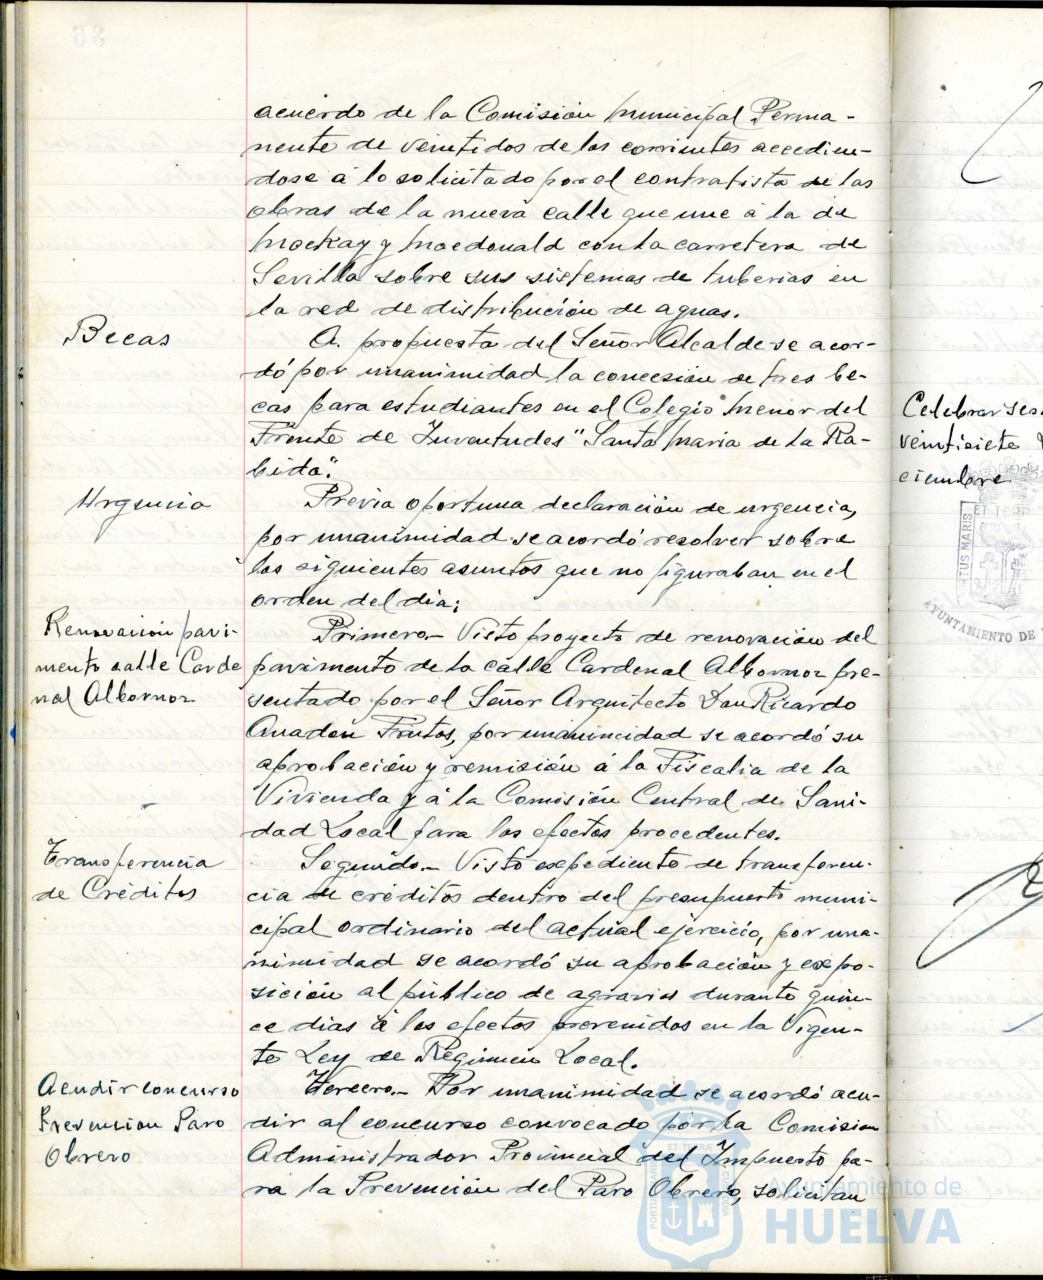 acuerdo de la Comision Municipal Perma-
nente de veintidos de los corrientes accedien-
dose á lo solicitado por el contratista de las
obras de la nueva calle que une á la de
Mackay y Macdonald con la carretera de
Sevilla sobre sus sistemas de tuberias en
la red de distribución de aguas.
Becas
A propuesta del Señor Alcalde se acor-
dó por unanimidad la concesión de tres be-
cas para estudiantes en el Colegio Menor del
Frente de Juventudes "Santa Maria de la Ra-
bida".
Urgencia
Previa oportuna declaración de urgencia,
por unanimidad se acordó resolver sobre
los siguientes asuntos que no figuraban en el
orden del dia:
Renovación pavi-
mento calle Carde
nal Albornoz
Primero.- Visto proyecto de renovación del
pavimento de la calle Cardenal Albornoz pre-
sentado por el Señor Arquitecto Don Ricardo
Anadon Frutos, por unanimidad se acordó su
aprobación y remisión á la Fiscalia de la
Vivienda y á la Comisión Central de Sani-
dad Local para los efectos procedentes.
Transferencia
de Créditos
Segundo.- Visto expediente de transferen-
cia de créditos dentro del presupuesto muni-
cipal ordinario del actual ejercicio, por una-
nimidad se acordó su aprobación y expo-
sición al público de agravios durante quin-
ce dias á los efectos prevenidos en la vigen-
te Ley de Régimen Local.
Acudir concurso
Prevencion Paro
Obrero
Tercero.- Por unanimidad se acordó acu-
dir al concurso convocado por la Comision
Administrador Provincial del Impuesto pa-
ra la Prevención del Paro Obrero, solicitan
Celebrar ses
veintisiete
ciembre
AYUNTAMIENTO DE
Ayuntamiento de
HUELVA